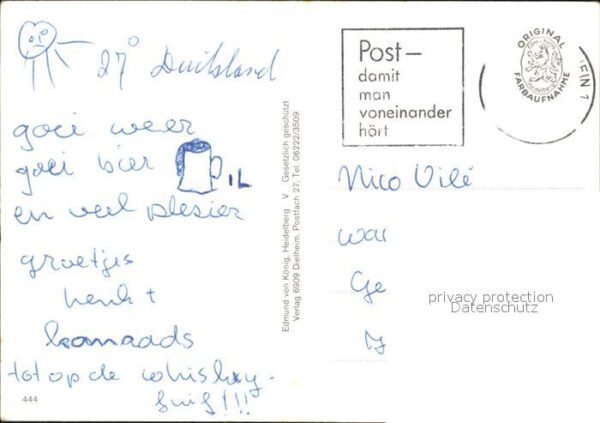 27° Duitsland
goei weer
goei bier
en veel plesier
groetjes
henk +
kamaads
tot op de whisky-
fuif!!!
444
Edmund von König, Heidelberg V Gesetzlich geschützt
Verlag 6909 Dielheim, Postfach 27, Tel. 06222/3509
Post–
damit
man
voneinander
hört
ORIGINAL
FARBAUFNAHME
Nico Vilé
war
Ge
privacy protection
Datenschutz